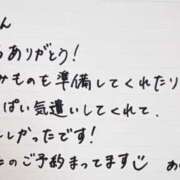 ん
ありがとう!
みものも準備してくれたり
ぱい気遣いしてくれて、
しかったです!
のご予約まってます